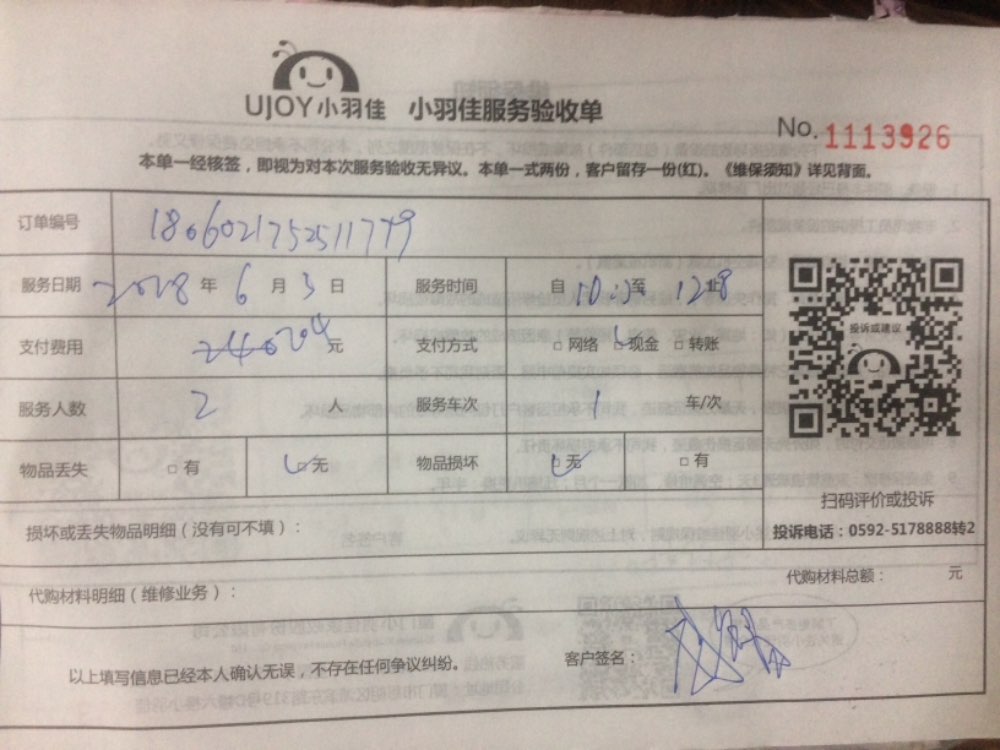 UJOY小羽佳 小羽佳服务验收单
No. 1113926
本单一经核签，即视为对本次服务验收无异议。本单一式两份，客户留存一份(红)。《维保须知》详见背面。
订单编号 1806021752511779
服务日期 2018 年 6 月 3 日 服务时间 自 10: 至 12 止
支付费用 204 元 支付方式 □网络 □现金 □转账
服务人数 2 人 服务车次 1 车/次
物品丢失 □有 □无 物品损坏 □无 □有
投诉或建议
扫码评价或投诉
投诉电话：0592-5178888转2
损坏或丢失物品明细（没有可不填）：
代购材料总额： 元
代购材料明细（维修业务）：
客户签名：
以上填写信息已经本人确认无误，不存在任何争议纠纷。